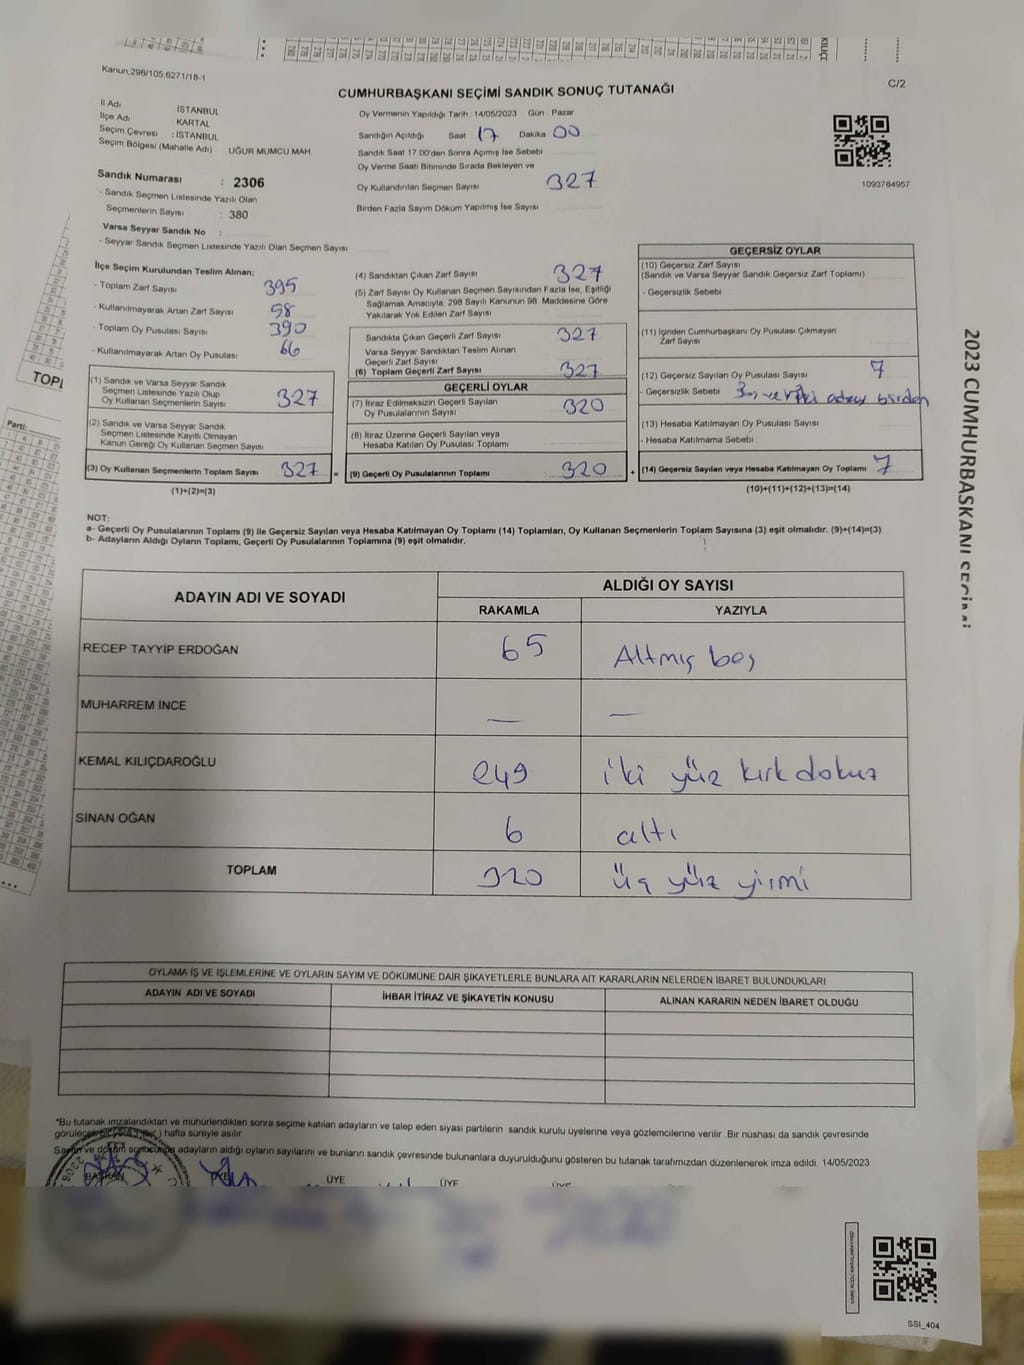 Kanun;298/105;6271/18-1
C/2
CUMHURBAŞKANI SEÇİMİ SANDIK SONUÇ TUTANAĞI
İl Adı İSTANBUL
İlçe Adı KARTAL
Seçim Çevresi : İSTANBUL
Seçim Bölgesi (Mahalle Adı) UĞUR MUMCU MAH
Sandık Numarası : 2306
- Sandık Seçmen Listesinde Yazılı Olan
Seçmenlerin Sayısı : 380
Varsa Seyyar Sandık No :
- Seyyar Sandık Seçmen Listesinde Yazılı Olan Seçmen Sayısı
Oy Vermenin Yapıldığı Tarih : 14/05/2023 Gün : Pazar
Sandığın Açıldığı Saat 17 Dakika 00
Sandık Saat 17:00'den Sonra Açımış İse Sebebi
Oy Verme Saati Bitiminde Sırada Bekleyen ve
Oy Kullandırılan Seçmen Sayısı 327
Birden Fazla Sayım Döküm Yapılmış İse Sayısı
1093784957
İlçe Seçim Kurulundan Teslim Alınan;
- Toplam Zarf Sayısı 395
- Kullanılmayarak Artan Zarf Sayısı 58
- Toplam Oy Pusulası Sayısı 390
- Kullanılmayarak Artan Oy Pusulası 66
(1) Sandık ve Varsa Seyyar Sandık
Seçmen Listesinde Yazılı Olup
Oy Kullanan Seçmenlerin Sayısı 327
(2) Sandık ve Varsa Seyyar Sandık
Seçmen Listesinde Kayıtlı Olmayan
Kanun Gereği Oy Kullanan Seçmen Sayısı
(3) Oy Kullanan Seçmenlerin Toplam Sayısı 327 =
(1)+(2)=(3)
(4) Sandıktan Çıkan Zarf Sayısı 327
(5) Zarf Sayısı Oy Kullanan Seçmen Sayısından Fazla İse, Eşitliği
Sağlamak Amacıyla, 298 Sayılı Kanunun 98. Maddesine Göre
Yakılarak Yok Edilen Zarf Sayısı
Sandıkta Çıkan Geçerli Zarf Sayısı 327
Varsa Seyyar Sandıktan Teslim Alınan
Geçerli Zarf Sayısı
(6) Toplam Geçerli Zarf Sayısı 327
GEÇERLİ OYLAR
(7) İtiraz Edilmeksizin Geçerli Sayılan
Oy Pusulalarının Sayısı 320
(8) İtiraz Üzerine Geçerli Sayılan veya
Hesaba Katılan Oy Pusulası Toplamı
(9) Geçerli Oy Pusulalarının Toplamı : 320 +
GEÇERSİZ OYLAR
(10) Geçersiz Zarf Sayısı
(Sandık ve Varsa Seyyar Sandık Geçersiz Zarf Toplamı)
- Geçersizlik Sebebi :
(11) İçinden Cumhurbaşkanı Oy Pusulası Çıkmayan
Zarf Sayısı
(12) Geçersiz Sayılan Oy Pusulası Sayısı 7
- Geçersizlik Sebebi aday birden
(13) Hesaba Katılmayan Oy Pusulası Sayısı
- Hesaba Katılmama Sebebi
(14) Geçersiz Sayılan veya Hesaba Katılmayan Oy Toplamı 7
(10)+(11)+(12)+(13)=(14)
NOT:
a- Geçerli Oy Pusulalarının Toplamı (9) ile Geçersiz Sayılan veya Hesaba Katılmayan Oy Toplamı (14) Toplamları, Oy Kullanan Seçmenlerin Toplam Sayısına (3) eşit olmalıdır. (9)+(14)=(3)
b- Adayların Aldığı Oyların Toplamı, Geçerli Oy Pusulalarının Toplamına (9) eşit olmalıdır.
ADAYIN ADI VE SOYADI
ALDIĞI OY SAYISI
RAKAMLA YAZIYLA
RECEP TAYYİP ERDOĞAN 65 Altmış beş
MUHARREM İNCE — —
KEMAL KILIÇDAROĞLU 249 iki yüz kırk dokuz
SİNAN OĞAN 6 altı
TOPLAM 320 üç yüz yirmi
OYLAMA İŞ VE İŞLEMLERİNE VE OYLARIN SAYIM VE DÖKÜMÜNE DAİR ŞİKAYETLERLE BUNLARA AİT KARARLARIN NELERDEN İBARET BULUNDUKLARI
ADAYIN ADI VE SOYADI İHBAR İTİRAZ VE ŞİKAYETİN KONUSU ALINAN KARARIN NEDEN İBARET OLDUĞU
*Bu tutanak imzalandıktan ve mühürlendikten sonra seçime katılan adayların ve talep eden siyasi partilerin sandık kurulu üyelerine veya gözlemcilerine verilir. Bir nüshası da sandık çevresinde
hafta süreyle asılır
adayların aldığı oyların sayılarını ve bunların sandık çevresinde bulunanlara duyurulduğunu gösteren bu tutanak tarafımızdan düzenlenerek imza edildi. 14/05/2023
BAŞKAN ÜYE ÜYE ÜYE
SSI_404
2023 CUMHURBAŞKANI SEÇİMİ
KILIÇ
TOPL
Parti: